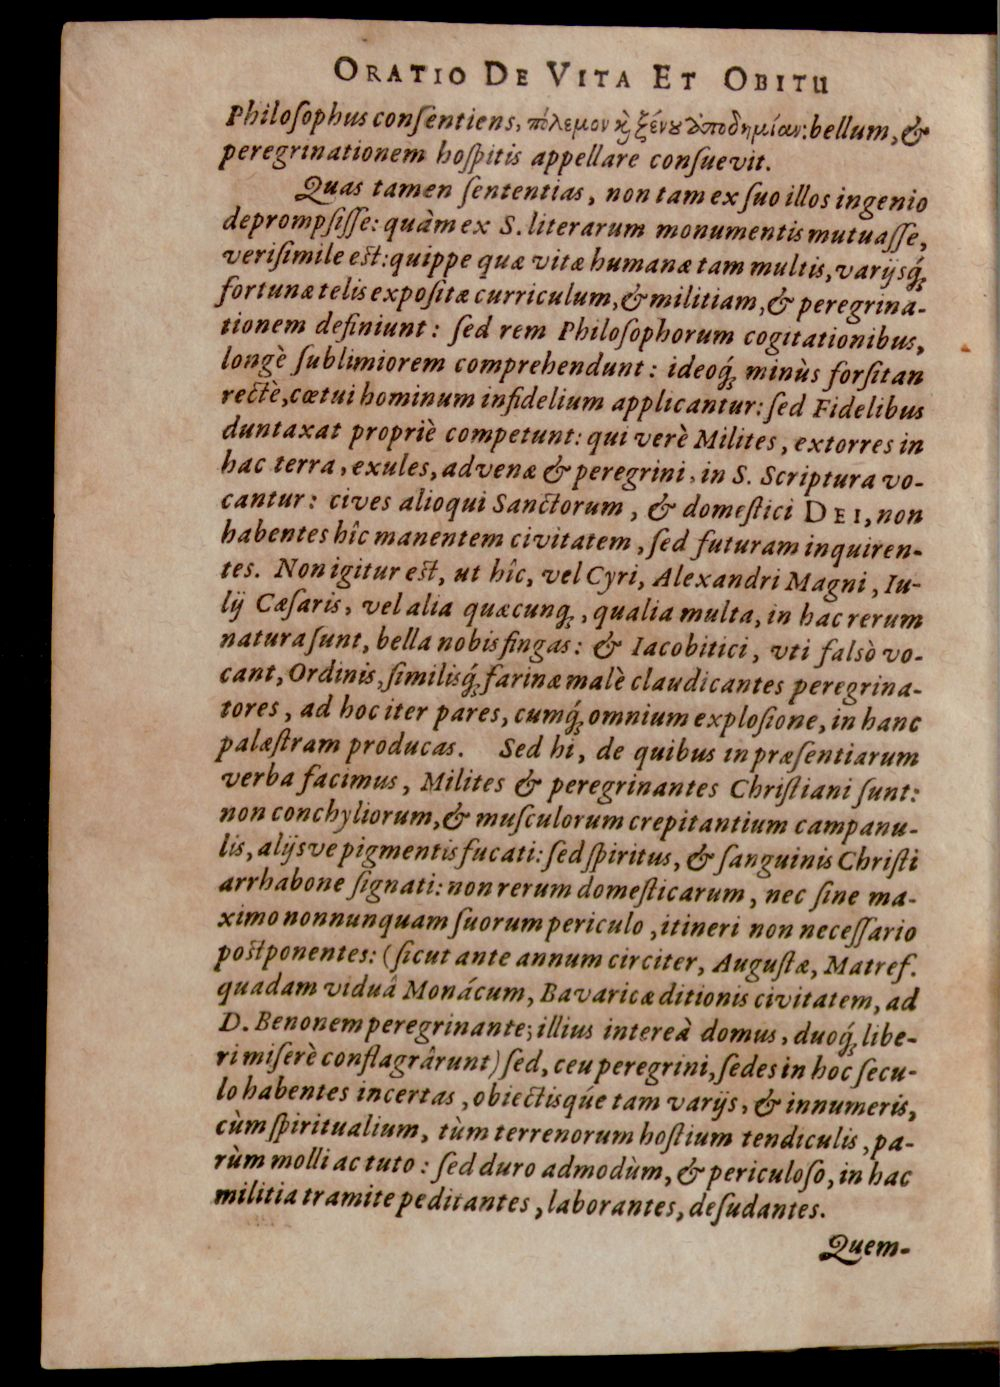 ORATIO DE VITA ET OBITU
Philoſophus conſentiens, πόλεμον κ̀ ξένȣ ἀποδημίαν: bellum, &
peregrinationem hoſpitis appellare conſuevit.
Quas tamen ſententias, non tam ex ſuo illos ingenio
depromſiſſe: quàm ex S. literarum monumentis mutuaſſe,
veriſimile est: quippe quæ vitæ humanæ tam multis, varijsq́;
fortunæ telis expoſitæ curriculum, & militiam, & peregrina-
tionem definiunt: ſed rem Philoſophorum cogitationibus,
longè ſublimiorem comprehendunt: ideoq́; minùs forſitan
rectè, cœtui hominum infidelium applicantur: ſed Fidelibus
duntaxat propriè competunt: qui verè Milites, extorres in
hac terra, exules, advenæ & peregrini, in S. Scriptura vo-
cantur: cives alioqui Sanctorum, & domeſtici DEI, non
habentes hîc manentem civitatem, ſed futuram inquiren-
tes. Non igitur est, ut hîc, vel Cyri, Alexandri Magni, Iu-
lij Cæſaris, vel alia quæcunq́;, qualia multa, in hac rerum
natura ſunt, bella nobis fingas: & Iacobitici, vti falsò vo-
cant, Ordinis, ſimilisq́; farinæ malè claudicantes peregrina-
tores, ad hoc iter pares, cumq́; omnium exploſione, in hanc
palæſtram producas. Sed hi, de quibus in præſentiarum
verba facimus, Milites & peregrinantes Chriſtiani ſunt:
non conchyliorum, & muſculorum crepitantium campanu-
lis, alijsve pigmentis fucati: ſed ſpiritus, & ſanguinis Chriſti
arrhabone ſignati: non rerum domeſticarum, nec ſine ma-
ximo nonnunquam ſuorum periculo, itineri non neceſſario
postponentes: (ſicut ante annum circiter, Auguſtæ, Matref.
quadam viduâ Monácum, Bavaricæ ditionis civitatem, ad
D. Benonem peregrinante; illius intereà domus, duoq́; libe-
ri miſerè conflagrârunt) ſed, ceu peregrini, ſedes in hoc ſecu-
lo habentes incertas, obiectisqúe tam varijs, & innumeris,
cùm ſpiritualium, tùm terrenorum hoſtium tendiculis, pa-
rùm molli ac tuto: ſed duro admodùm, & periculoſo, in hac
militia tramite peditantes, laborantes, deſudantes.
Quem-